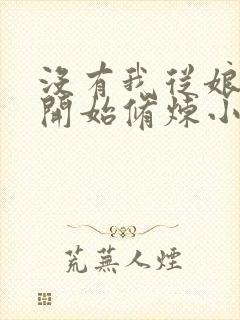 沒有我從娘
開始脩煉小
荒蕪人煙